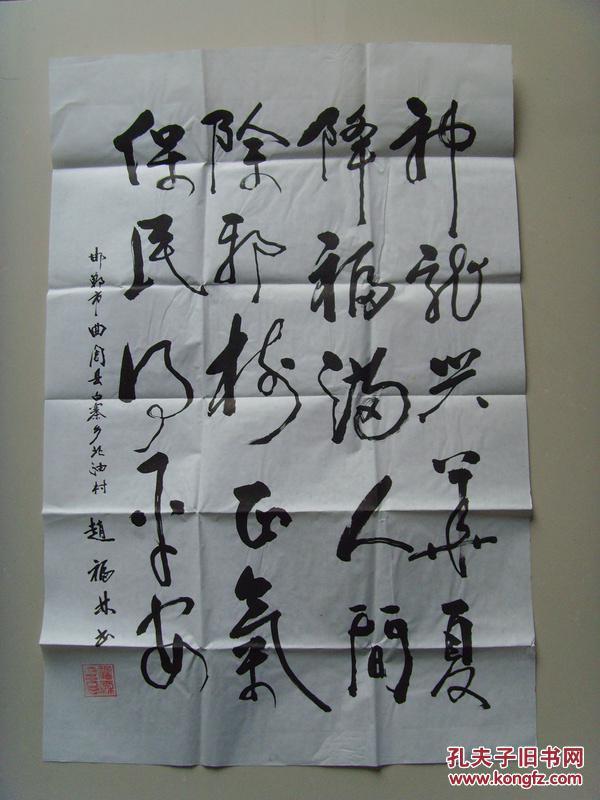 神龙兴华夏
降福满人间
除邪树正氣
保民得平安
邯郸市曲周县白寨乡北油村 趙福林书
孔夫子旧书网
www.kongfz.com